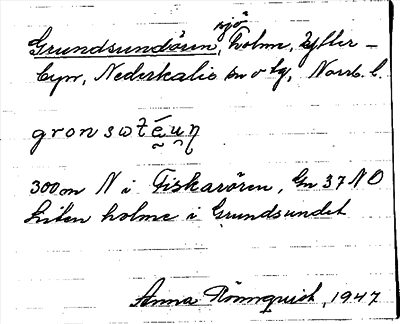 sjö
Grundsundören, holme, Ytter-
byn, Nederkalix sn o tg, Norrb. l.
gronswtéun
300 m N i Fiskarören, Gn 37 NO
Liten holme i Grundsundet
Anna Rönnquist, 1947